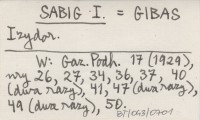 SABIG I. = GIBAS
Izydor.
W: Gaz. Podh. 17 (1929),
nry 26, 27, 34, 36, 37, 40
(dwa razy), 41, 47 (dwa razy),
49 (dwa razy), 50.